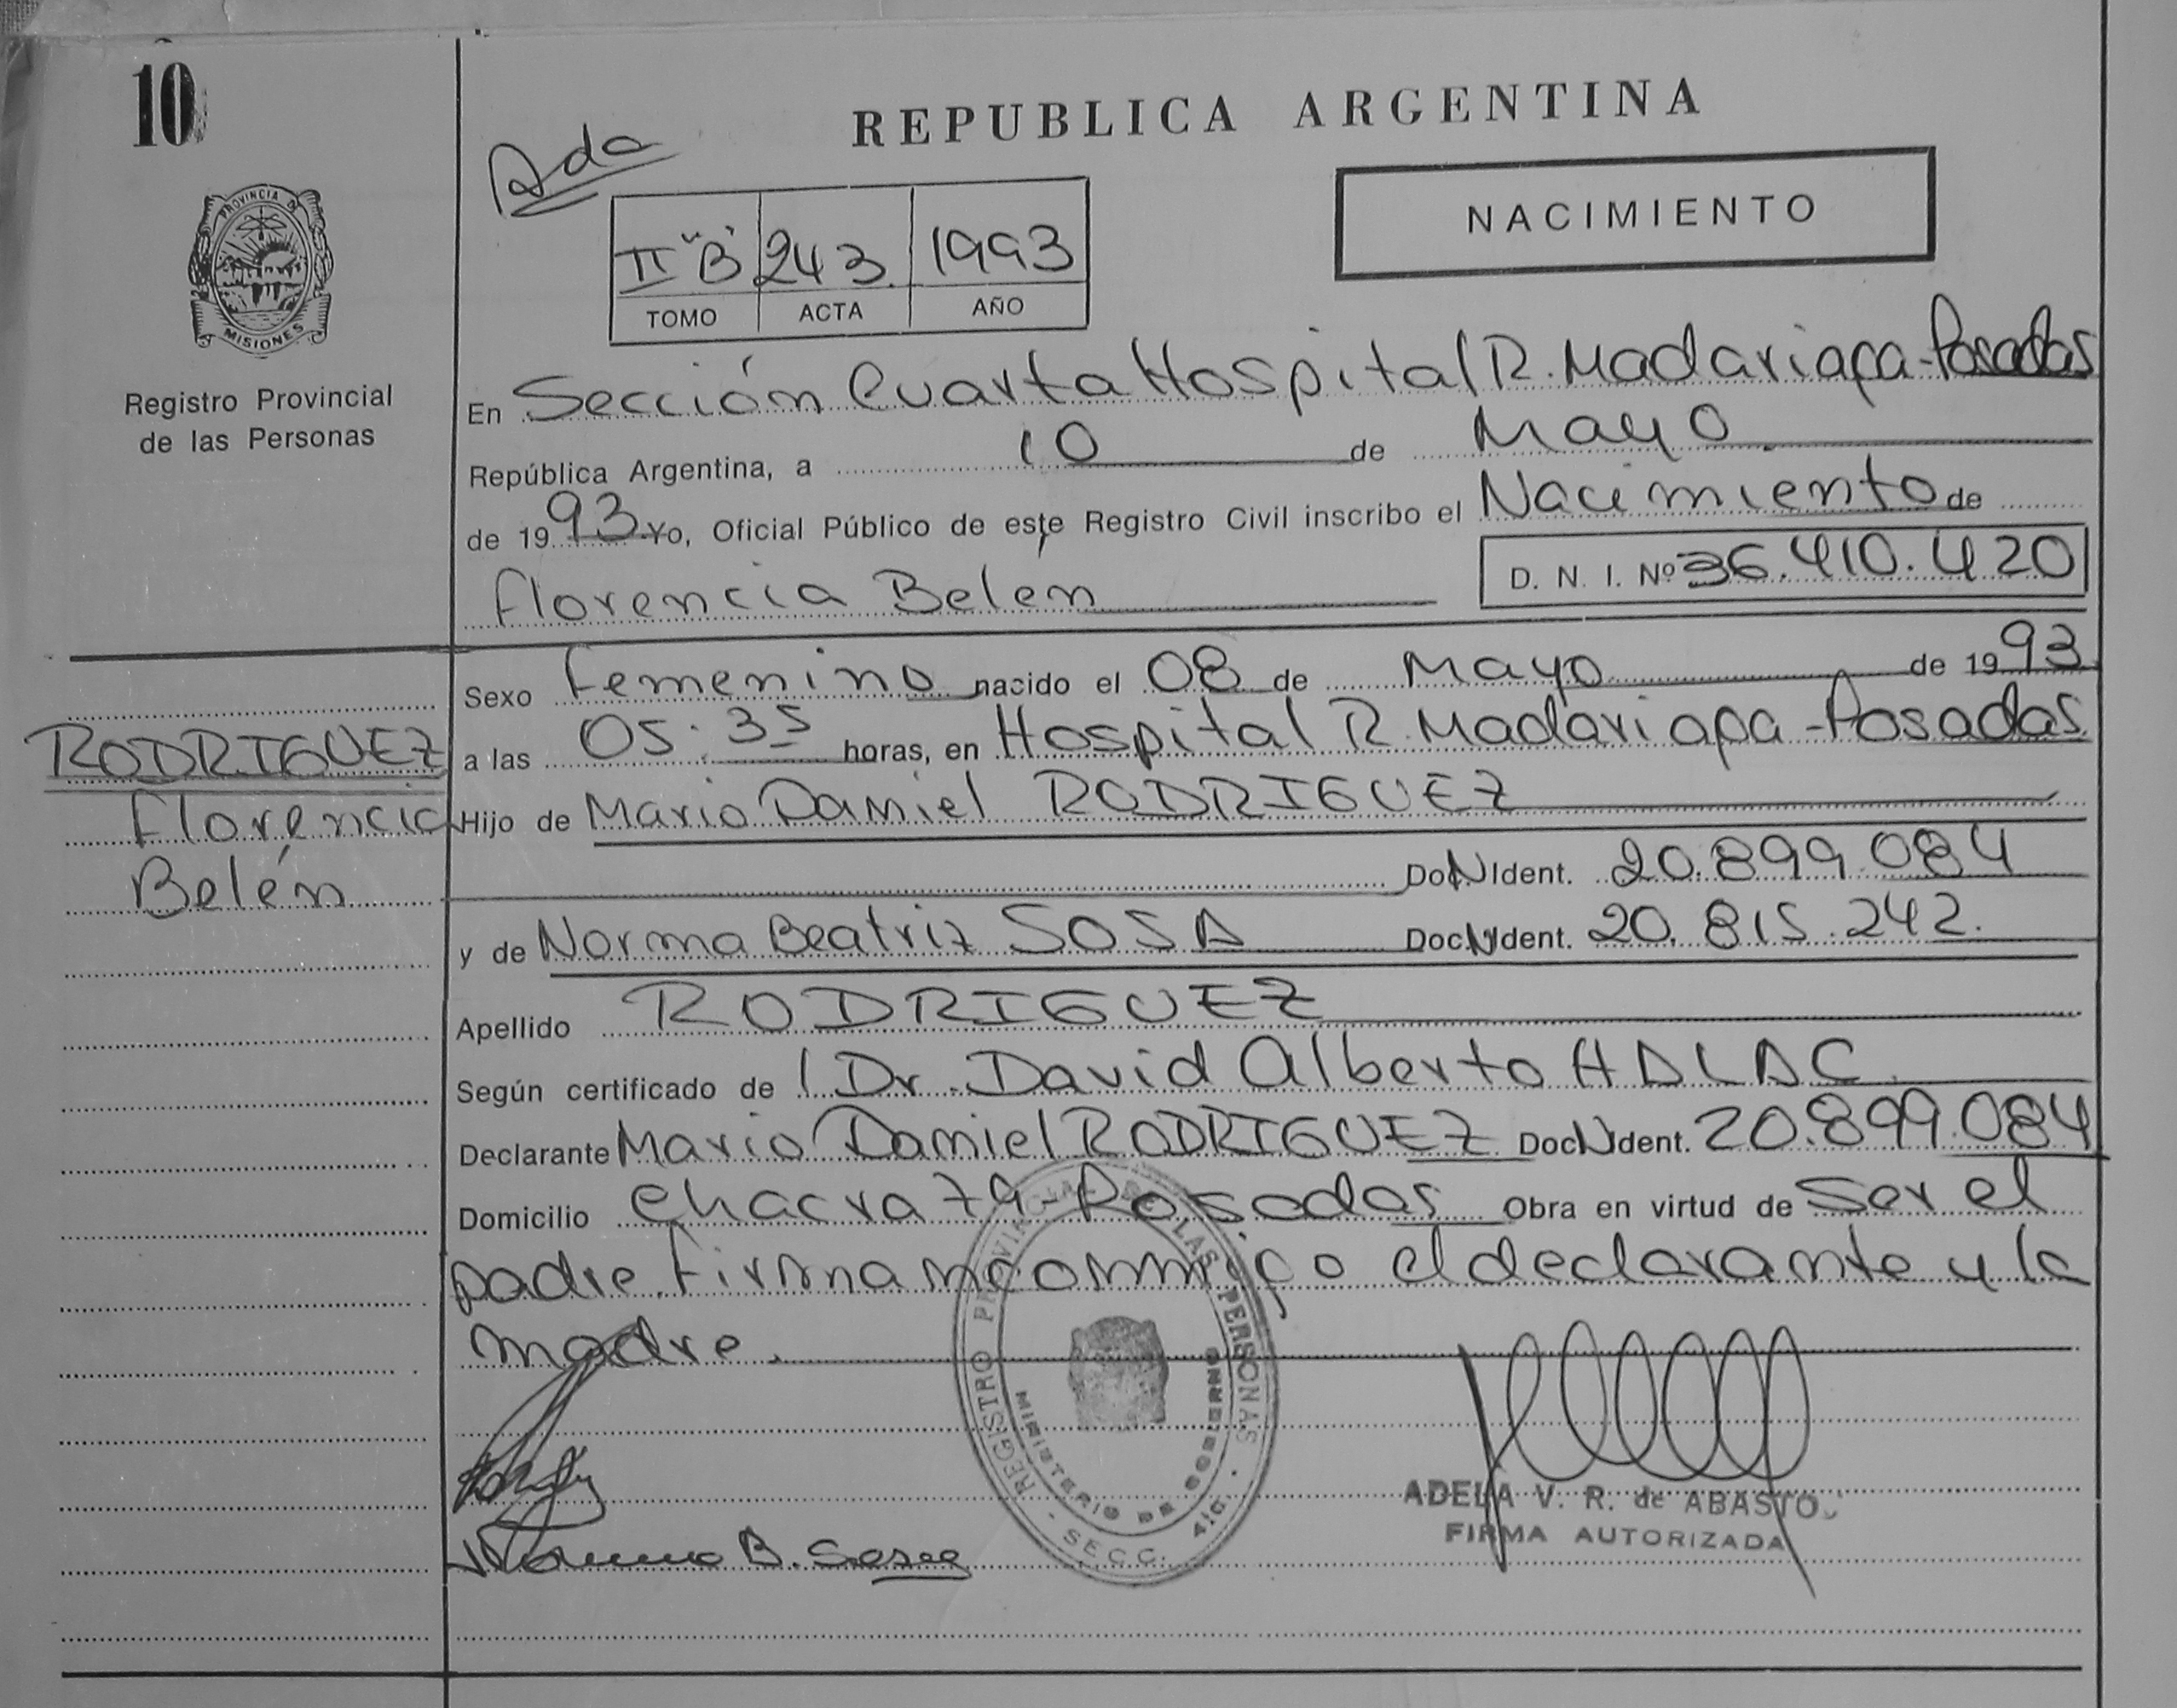 10
REPUBLICA ARGENTINA
Ada
NACIMIENTO
II "B" 243. 1993
TOMO ACTA AÑO
PROVINCIA DE MISIONES
Registro Provincial
de las Personas
En Sección Cuarta Hospital R. Madariaga - Posadas
República Argentina, a 10 de Mayo
de 1993 Yo, Oficial Público de este Registro Civil inscribo el Nacimiento de
Florencia Belen D. N. I. Nº 36.410.420
Sexo Femenino nacido el 08 de Mayo de 1993
a las 05:35 horas, en Hospital R. Madariaga - Posadas.
RODRIGUEZ
Florencia
Belén
Hijo de Mario Daniel RODRIGUEZ
Doc. N Ident. 20.899.084
y de Norma Beatriz SOSA Doc. N Ident. 20.815.242.
Apellido RODRIGUEZ
Según certificado de l Dr. David Alberto HALAC.
Declarante Mario Daniel RODRIGUEZ Doc N Ident. 20.899.084
Domicilio Chacra 79 - Posadas Obra en virtud de Ser el
padre. Firman conmigo el declarante y la
madre.
REGISTRO PROVINCIAL DE LAS PERSONAS
MINISTERIO DE GOBIERNO
- SECC. 4ta. -
ADELA V. R. de ABASTO
FIRMA AUTORIZADA
Norma B. Sosa